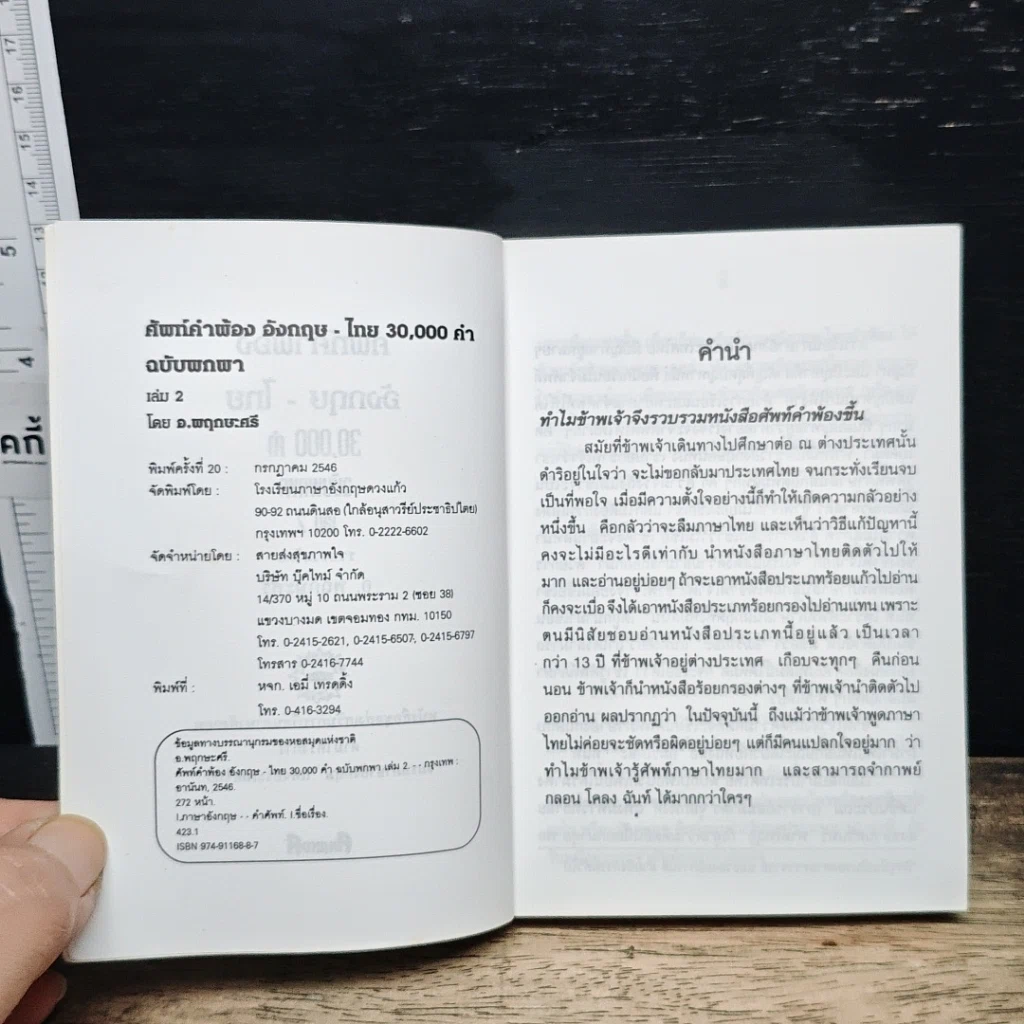 ศัพท์คำพ้อง อังกฤษ - ไทย 30,000 คำ
ฉบับพกพา
เล่ม 2
โดย อ.พฤกษะศรี
พิมพ์ครั้งที่ 20 : กรกฎาคม 2546
จัดพิมพ์โดย : โรงเรียนภาษาอังกฤษดวงแก้ว
90-92 ถนนดินสอ (ใกล้อนุสาวรีย์ประชาธิปไตย)
กรุงเทพฯ 10200 โทร. 0-2222-6602
จัดจำหน่ายโดย : สายส่งสุขภาพใจ
บริษัท บุ๊คไทม์ จำกัด
14/370 หมู่ 10 ถนนพระราม 2 (ซอย 38)
แขวงบางมด เขตจอมทอง กทม. 10150
โทร. 0-2415-2621, 0-2415-6507, 0-2415-6797
โทรสาร 0-2416-7744
พิมพ์ที่ : หจก. เอมี่ เทรดดิ้ง
โทร. 0-416-3294
ข้อมูลทางบรรณานุกรมของหอสมุดแห่งชาติ
อ.พฤกษะศรี.
ศัพท์คำพ้อง อังกฤษ - ไทย 30,000 คำ ฉบับพกพา เล่ม 2. - - กรุงเทพ :
ธานินท, 2546.
272 หน้า.
I.ภาษาอังกฤษ - - คำศัพท์. I.ชื่อเรื่อง.
423.1
ISBN 974-91168-8-7
คำนำ
ทำไมข้าพเจ้าจึงรวบรวมหนังสือศัพท์คำพ้องขึ้น
สมัยที่ข้าพเจ้าเดินทางไปศึกษาต่อ ณ ต่างประเทศนั้น
ดำริอยู่ในใจว่า จะไม่ขอกลับมาประเทศไทย จนกระทั่งเรียนจบ
เป็นที่พอใจ เมื่อมีความตั้งใจอย่างนี้ก็ทำให้เกิดความกลัวอย่าง
หนึ่งขึ้น คือกลัวว่าจะลืมภาษาไทย และเห็นว่าวิธีแก้ปัญหานี้
คงจะไม่มีอะไรดีเท่ากับ นำหนังสือภาษาไทยติดตัวไปให้
มาก และอ่านอยู่บ่อยๆ ถ้าจะเอาหนังสือประเภทร้อยแก้วไปอ่าน
ก็คงจะเบื่อ จึงได้เอาหนังสือประเภทร้อยกรองไปอ่านแทน เพราะ
ตนมีนิสัยชอบอ่านหนังสือประเภทนี้อยู่แล้ว เป็นเวลา
กว่า 13 ปี ที่ข้าพเจ้าอยู่ต่างประเทศ เกือบจะทุกๆ คืนก่อน
นอน ข้าพเจ้าก็นำหนังสือร้อยกรองต่างๆ ที่ข้าพเจ้านำติดตัวไป
ออกอ่าน ผลปรากฏว่า ในปัจจุบันนี้ ถึงแม้ว่าข้าพเจ้าพูดภาษา
ไทยไม่ค่อยจะชัดหรือผิดอยู่บ่อยๆ แต่ก็มีคนแปลกใจอยู่มาก ว่า
ทำไมข้าพเจ้ารู้ศัพท์ภาษาไทยมาก และสามารถจำกาพย์
กลอน โคลง ฉันท์ ได้มากกว่าใครๆ
17
16
15
14
13
5
4